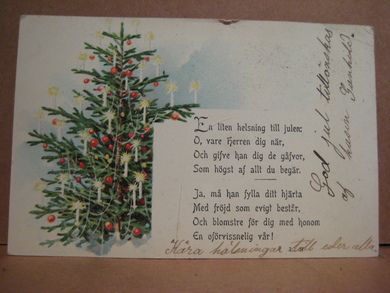 En liten helsning till julen:
O, vare Herren dig när,
Och gifve han dig de gåfvor,
Som högst af allt du begär.
Ja, må han fylla ditt hjärta
Med fröjd som evigt består,
Och blomstre för dig med honom
En oförvissnelig vår!
Kära hälsningar till eder alla.
God jul tillönskas
af kusin Gunhild.